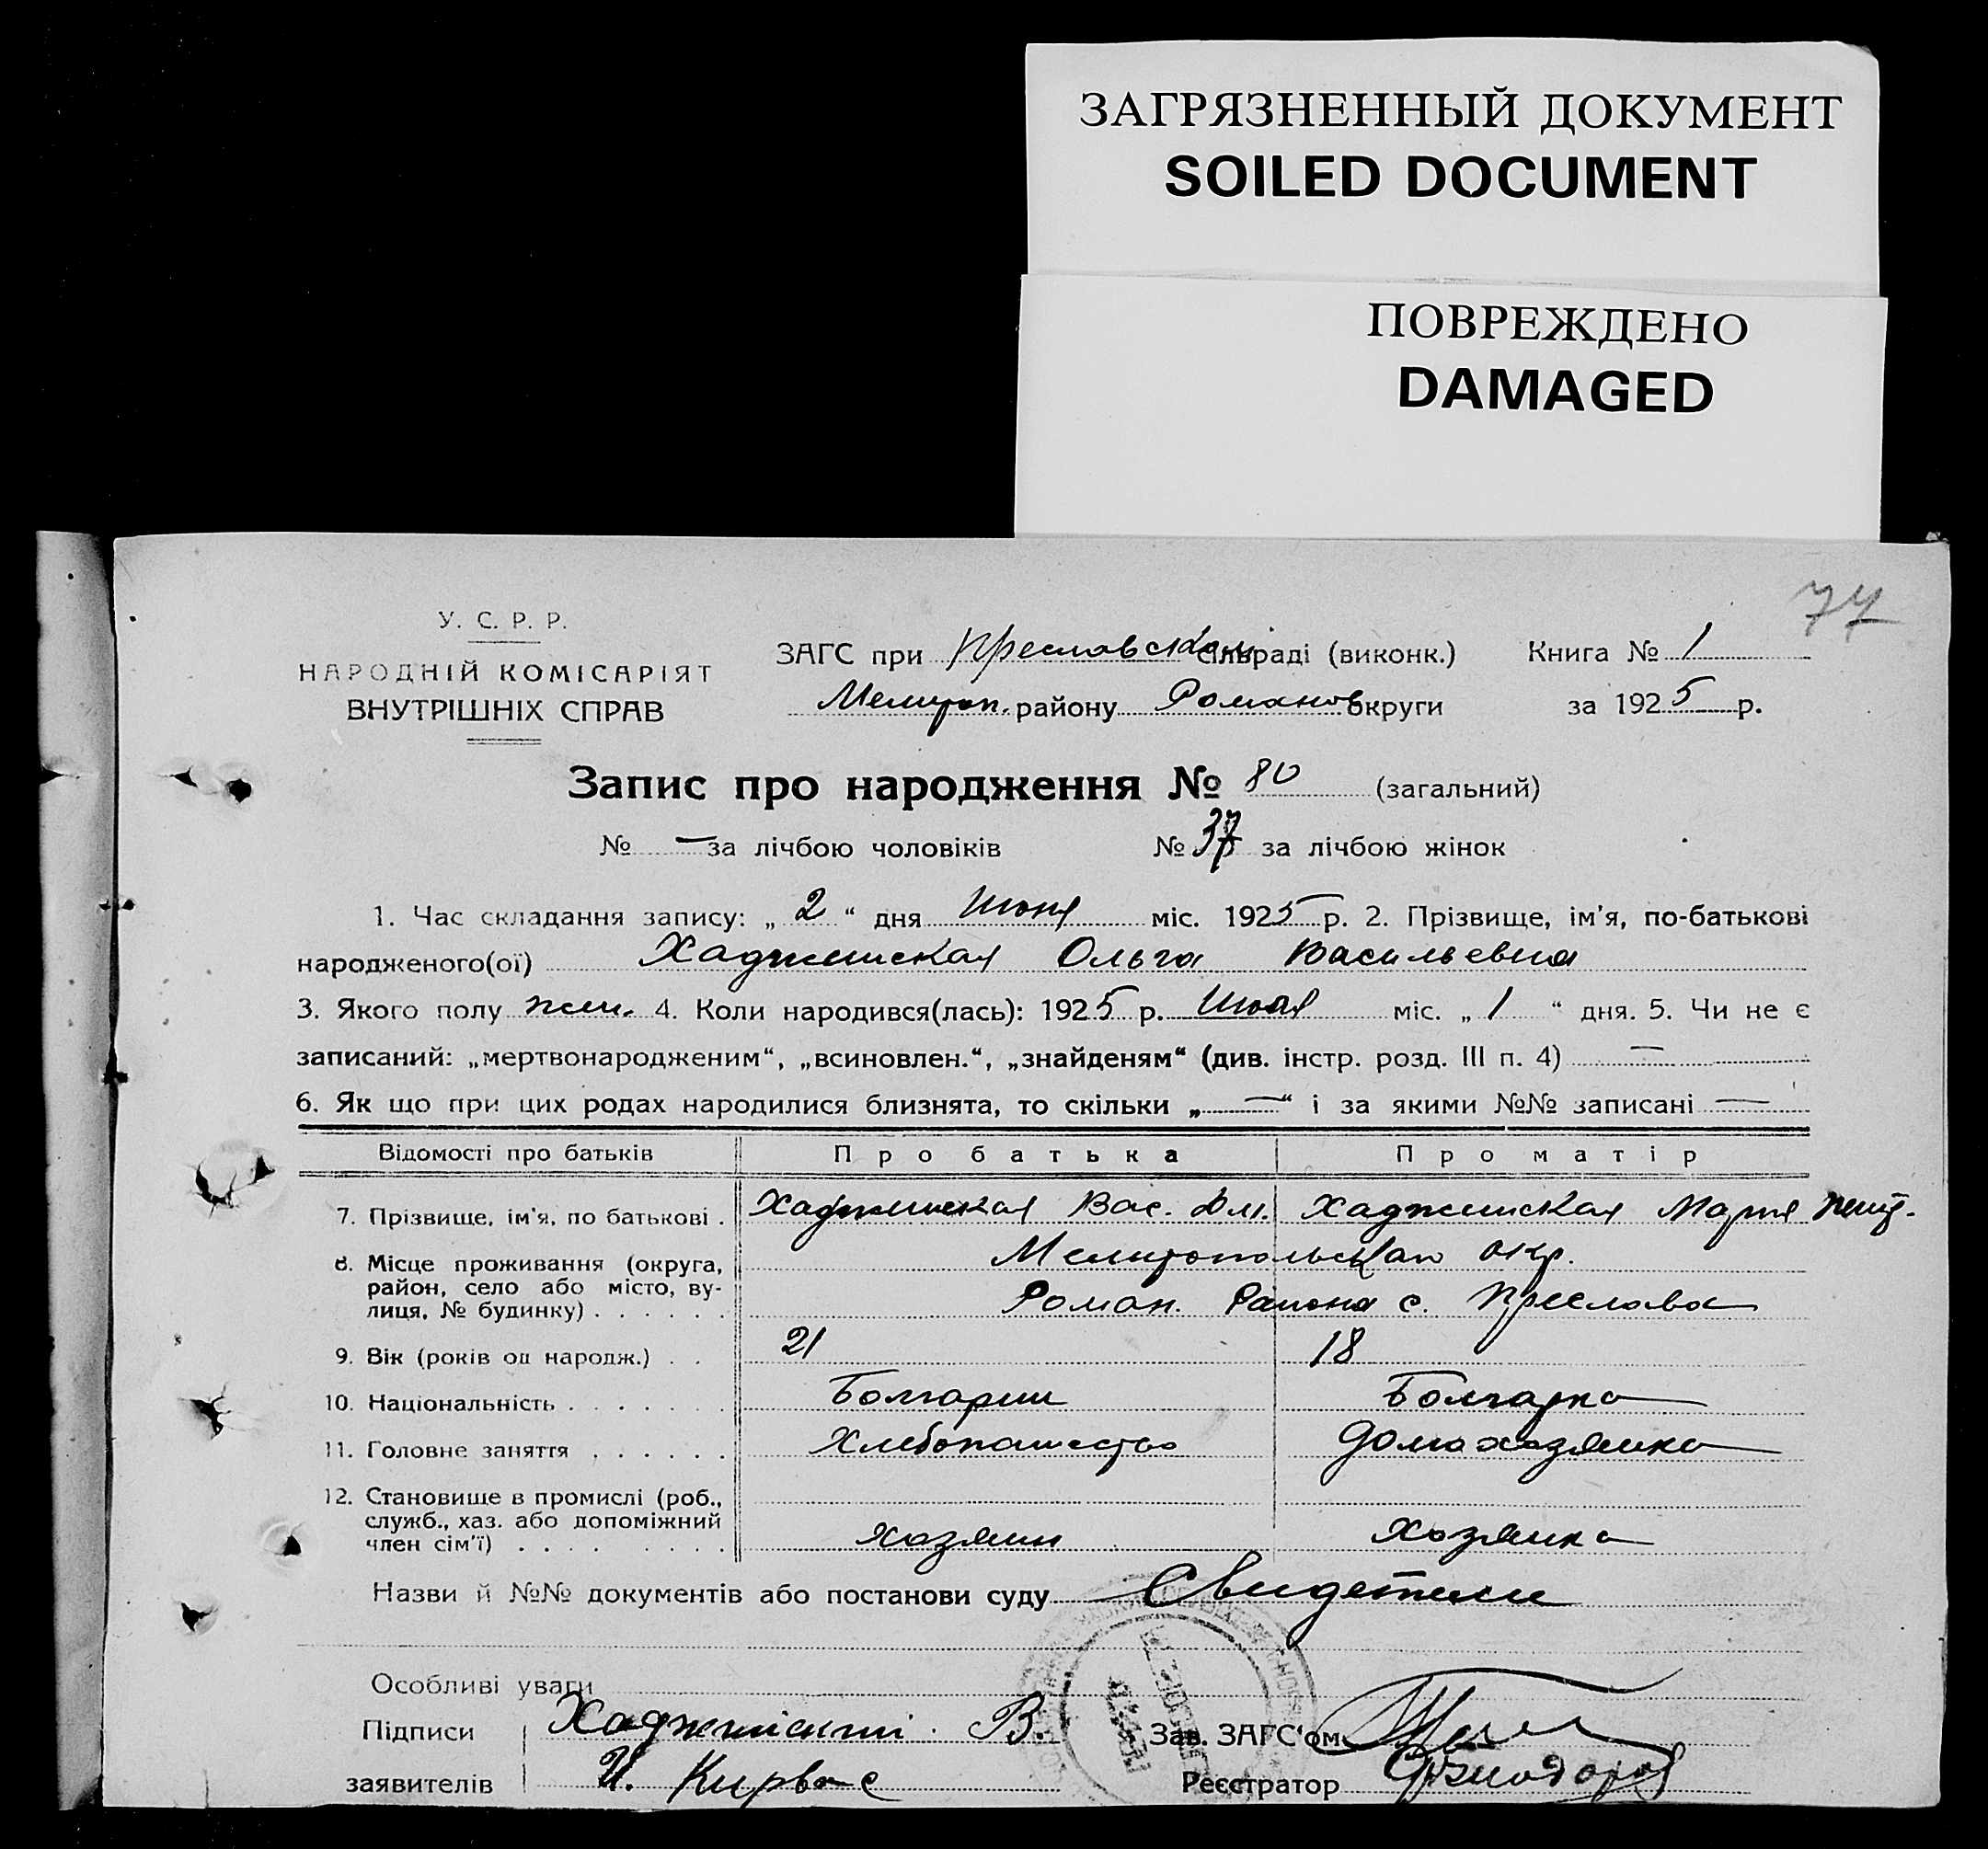 ЗАГРЯЗНЕННЫЙ ДОКУМЕНТ
SOILED DOCUMENT
ПОВРЕЖДЕНО
DAMAGED
77
У. С. Р. Р.
НАРОДНІЙ КОМІСАРІЯТ
ВНУТРІШНІХ СПРАВ
ЗАГС при Преславском сільраді (виконк.) Книга № 1
Мелитоп. району Романов округи за 1925 р.
Запис про народження № 80 (загальний)
№ — за лічбою чоловіків № 37 за лічбою жінок
1. Час складання запису: „ 2 “ дня міс. 1925 р. 2. Прізвище, ім'я, по-батькові
народженого(ої) Хаджийская Ольга Васильевна
3. Якого полу жен. 4. Коли народився(лась): 1925 р. міс. „ 1 “ дня. 5. Чи не є
записаний: „мертвонародженим“, „всиновлен.“, „знайденям“ (див. інстр. розд. III п. 4) —
6. Як що при цих родах народилися близнята, то скільки „ — “ і за якими №№ записані —
Відомості про батьків Про батька Про матір
7. Прізвище, ім'я, по батькові . Хаджийская Вас. Дм. Хаджийская Мария
8. Місце проживання (округа, Мелитопольская окр.
район, село або місто, ву-
лиця, № будинку) . . . . . . Роман. Района с. Преслава
9. Вік (років од народж.) . . 21 18
10. Національність . . . . . . . Болгарин Болгарка
11. Головне заняття . . . . . . Хлебопашество Домохозяйка
12. Становище в промислі (роб.,
служб., хаз. або допоміжний
член сім'ї) . . . . . . . . . хозяин Хозяйка
Назви й №№ документів або постанови суду Свидетели
Особливі уваги
Підписи В. Зав. ЗАГС‘ом
заявителів И. Реєстратор